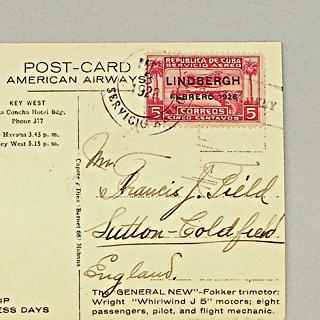 POST-CARD
AMERICAN AIRWAYS
KEY WEST
Concha Hotel Bdg.
Phone 377
Havana 3.45 p. m.
ey West 5.15 p. m.
REPUBLICA DE CUBA
SERVICIO AEREO
LINDBERGH
FEBRERO 1928
5 CORREOS 5
CINCO CENTAVOS
1928
SERVICIO
Mr
Francis J. Field
Sutton-Coldfield
England.
IP
ESS DAYS
The "GENERAL NEW"-Fokker trimotor:
Wright "Whirlwind J 5" motors; eight
passengers, pilot, and flight mechanic.